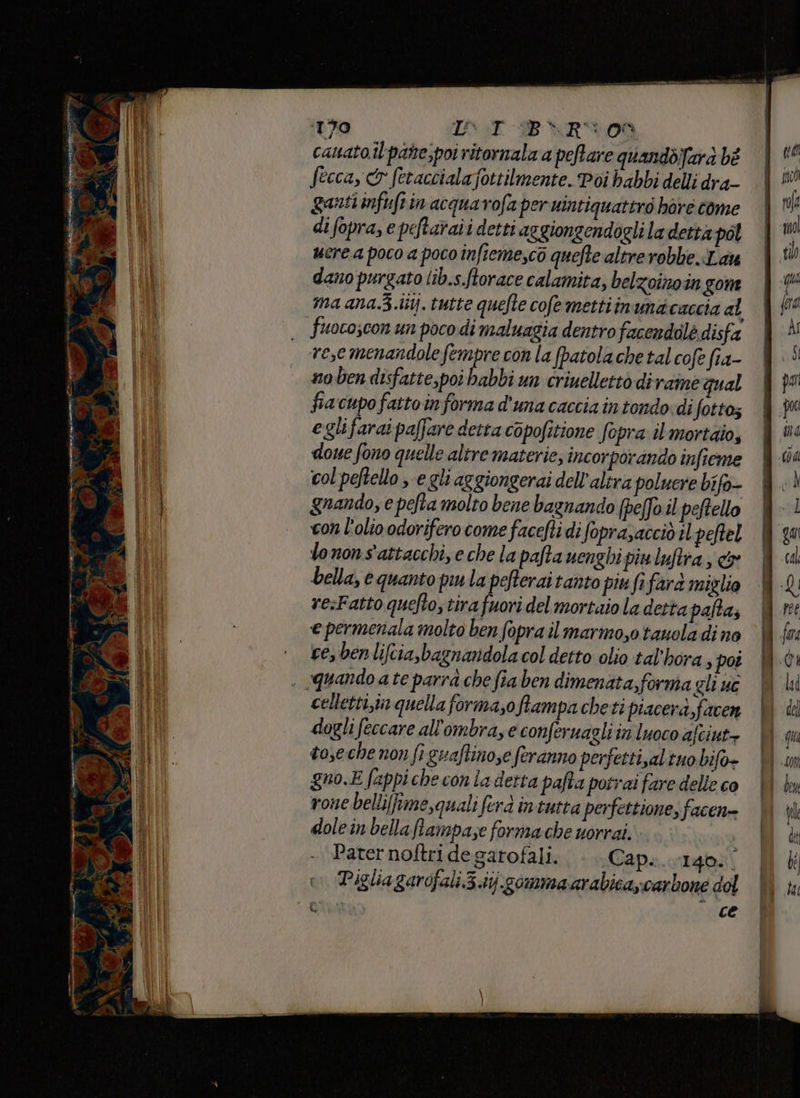 170 L I B R O
cauato il pane, poi ritornala a pestare quando sarà bē
secca, & setacciala sottilmente. Poi habbi delli dra-
ganti infusi in acqua rosa per uintiquattro hore come
di sopra, e pestarai i detti aggiongendogli la detta pol
uere a poco a poco insieme, cō queste altre robbe. Lau
dano purgato lib.s. storace calamita, belzoino in gom
ma ana.℥.iiij. tutte queste cose metti in una caccia al
fuoco, con un poco di maluagia dentro facendole disfa
re, e menandole sempre con la spatola che tal cose sia-
no ben disfatte, poi habbi un criuelletto di rame qual
sia cupo fatto in forma d'una caccia in tondo di sotto,
e gli farai passare detta cōpositione sopra il mortaio,
doue sono quelle altre materie, incorporando insieme
col pestello, e gli aggiongerai dell'altra poluere biso-
gnando, e pesta molto bene bagnando spesso il pestello
con l'olio odorifero come facesti di sopra, acciò il pestel
lo non s'attacchi, e che la pasta uenghi piu lustra, &
bella, e quanto piu la pesterai tanto piu si farà miglio
re: Fatto questo, tira fuori del mortaio la detta pasta,
e permenala molto ben sopra il marmo, o tauola di no
ce, ben liscia, bagnandola col detto olio tal'hora, poi
quando a te parrà che sia ben dimenata, forma gli uc
celletti, in quella forma, o stampa che ti piacerà, facen
dogli seccare all'ombra, e conseruagli in luoco asciut-
to, e che non si guastino, e seranno perfetti, al tuo biso-
gno. E sappi che con la detta pasta potrai fare delle co
rone bellissime, quali serà in tutta perfettione, facen-
dole in bella stampa, e forma che uorrai.
Pater nostri de garofali. Cap. 140.
Piglia garofali.℥.iij. gomma arabica, carbone dol
ce